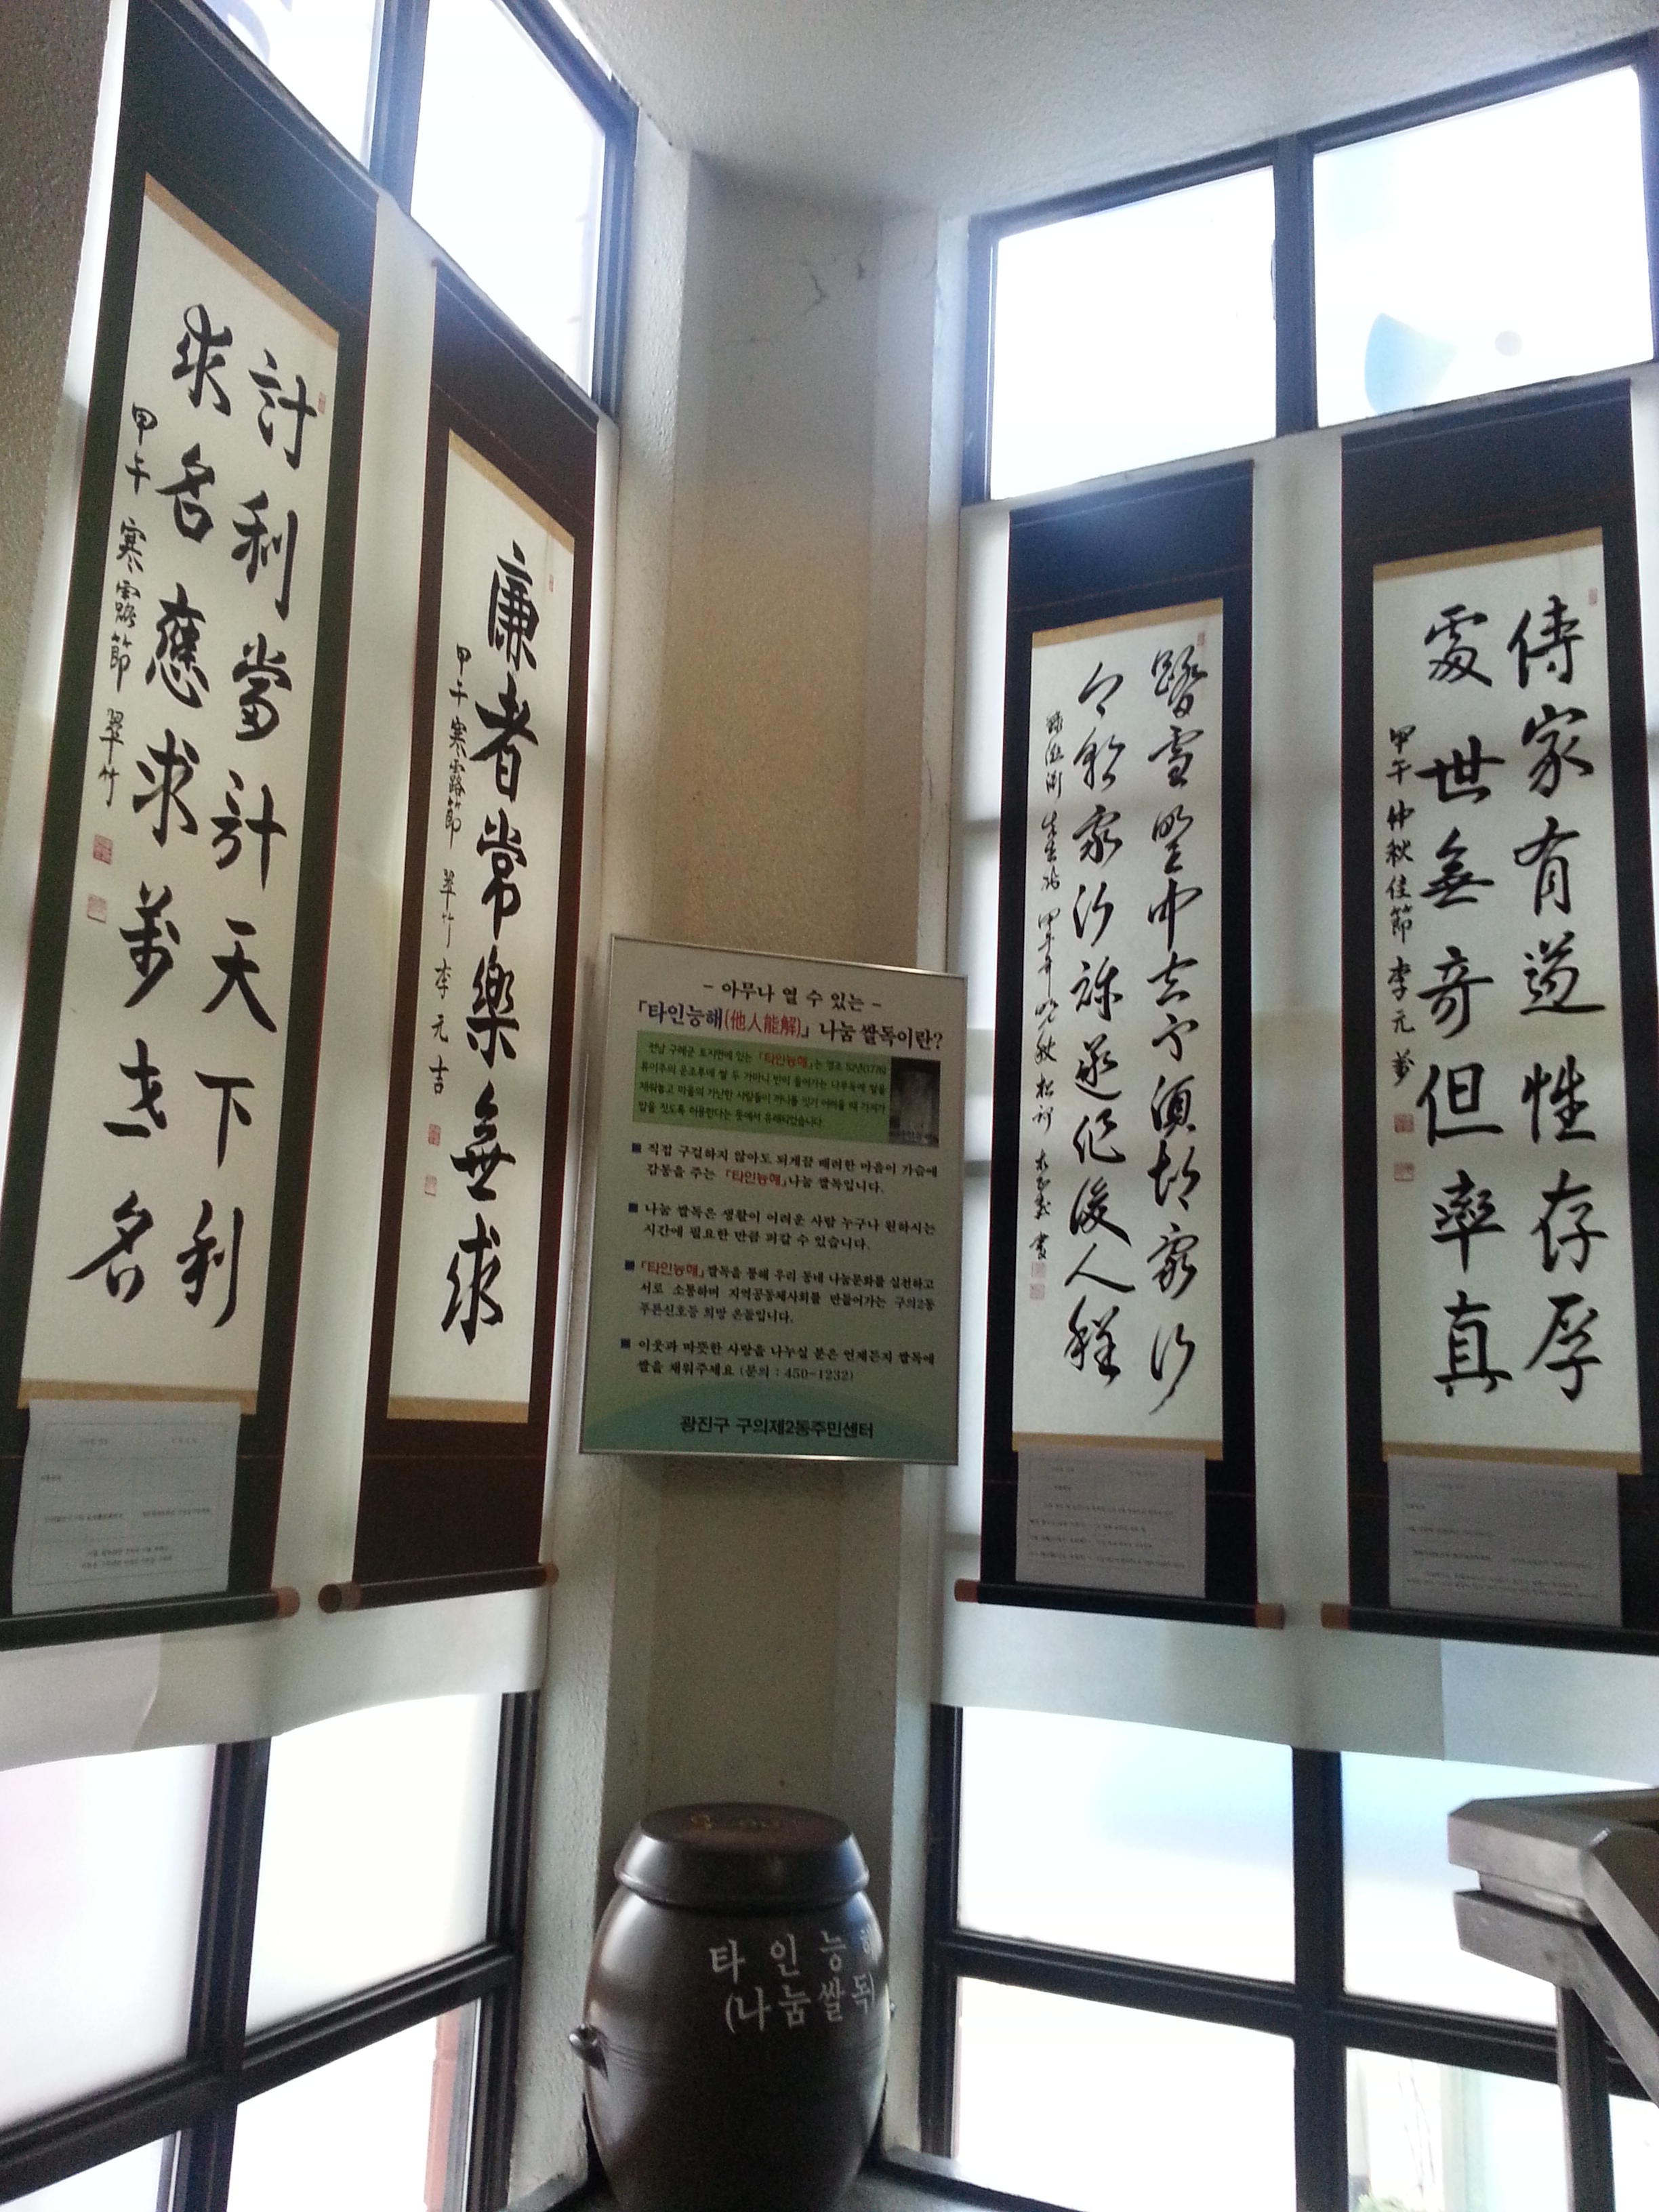 計利當計天下利
求名應求萬世名
甲午 寒露節 翠竹
廉者常樂無求
甲午寒露節 翠竹 李元吉
- 아무나 열 수 있는 -
「타인능해(他人能解)」 나눔 쌀독이란?
전남 구례군 토지면에 있는 「타인능해」는 영조 52년(1776)
류이주의 운조루에 쌀 두 가마니 반이 들어가는 나무독에 쌀을
채워놓고 마을의 가난한 사람들이 끼니를 잇기 어려울 때 가져가
밥을 짓도록 허용한다는 뜻에서 유래되었습니다
■ 직접 구걸하지 않아도 되게끔 배려한 마음이 가슴에
감동을 주는 「타인능해」나눔 쌀독입니다.
■ 나눔 쌀독은 생활이 어려운 사람 누구나 원하시는
시간에 필요한 만큼 퍼갈 수 있습니다.
■ 「타인능해」쌀독을 통해 우리 동네 나눔문화를 실천하고
서로 소통하며 지역공동체사회를 만들어가는 구의2동
푸른신호등 희망 온돌입니다.
■ 이웃과 따뜻한 사랑을 나누실 분은 언제든지 쌀독에
쌀을 채워주세요 (문의 : 450-1232)
광진구 구의제2동주민센터
踏雪野中去不須胡亂行
今朝我行跡遂作後人程
甲午年 晩秋 松河 書
傳家有道惟存厚
處世無奇但率真
甲午仲秋佳節 李元
타인능해
(나눔쌀독)